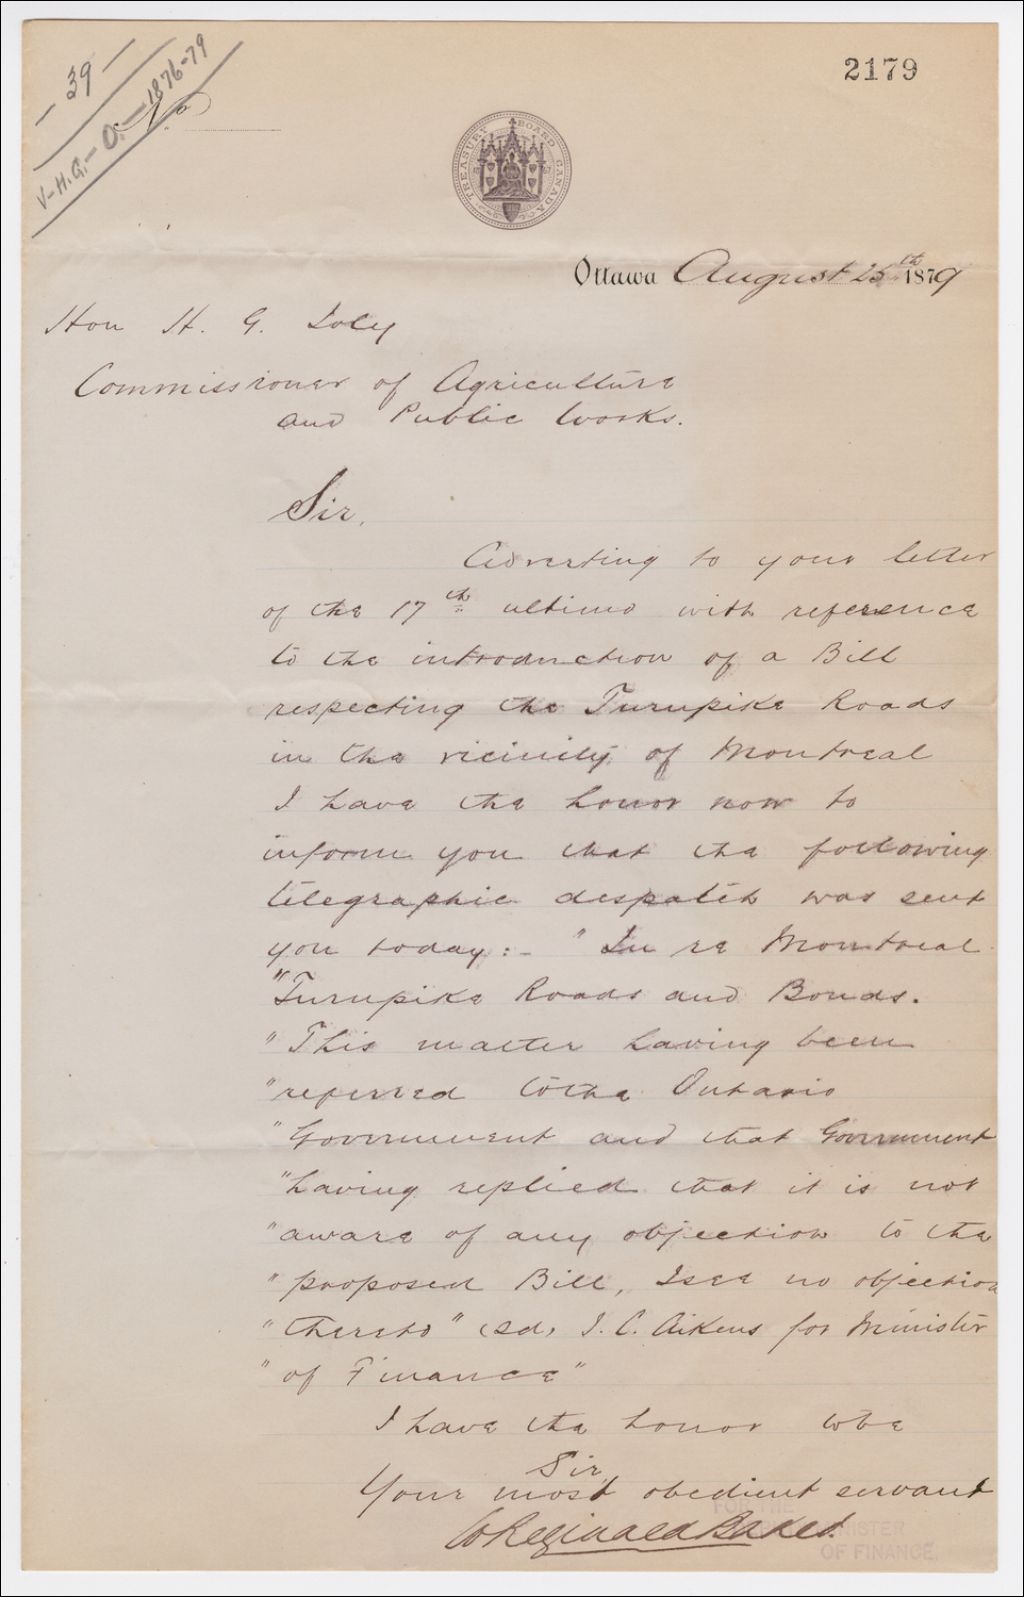 2179
39
V-H.G.-O.-1876-79
No
TREASURY BOARD CANADA
Ottawa August 25th 1879
Hon H. G. Joly
Commissioner of Agriculture
and Public Works.
Sir,
Adverting to your letter
of the 17th ultimo with reference
to the introduction of a Bill
respecting the Turnpike Roads
in the vicinity of Montreal
I have the honor now to
inform you that the following
telegraphic despatch was sent
you today:- "In re Montreal
"Turnpike Roads and Bonds.
"This matter having been
"referred to the Ontario
"Government and that Government
"having replied that it is not
"aware of any objection to the
"proposed Bill, I see no objection
"thereto" (sd) J. C. Aikens for Minister
"of Finance"
I have the honor to be
Sir,
Your most obedient servant
W Reginald Baker.
FOR THE
MINISTER
OF FINANCE.